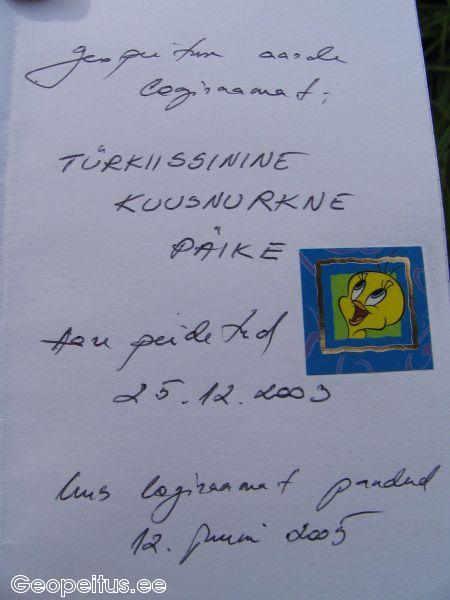 Geopeituse aarde
logiraamat:
TÜRKIISSININE
KUUSNURKNE
PÄIKE
Aare peidetud
25.12.2003
Uus logiraamat pandud
12. juuni 2005
Geopeitus.ee